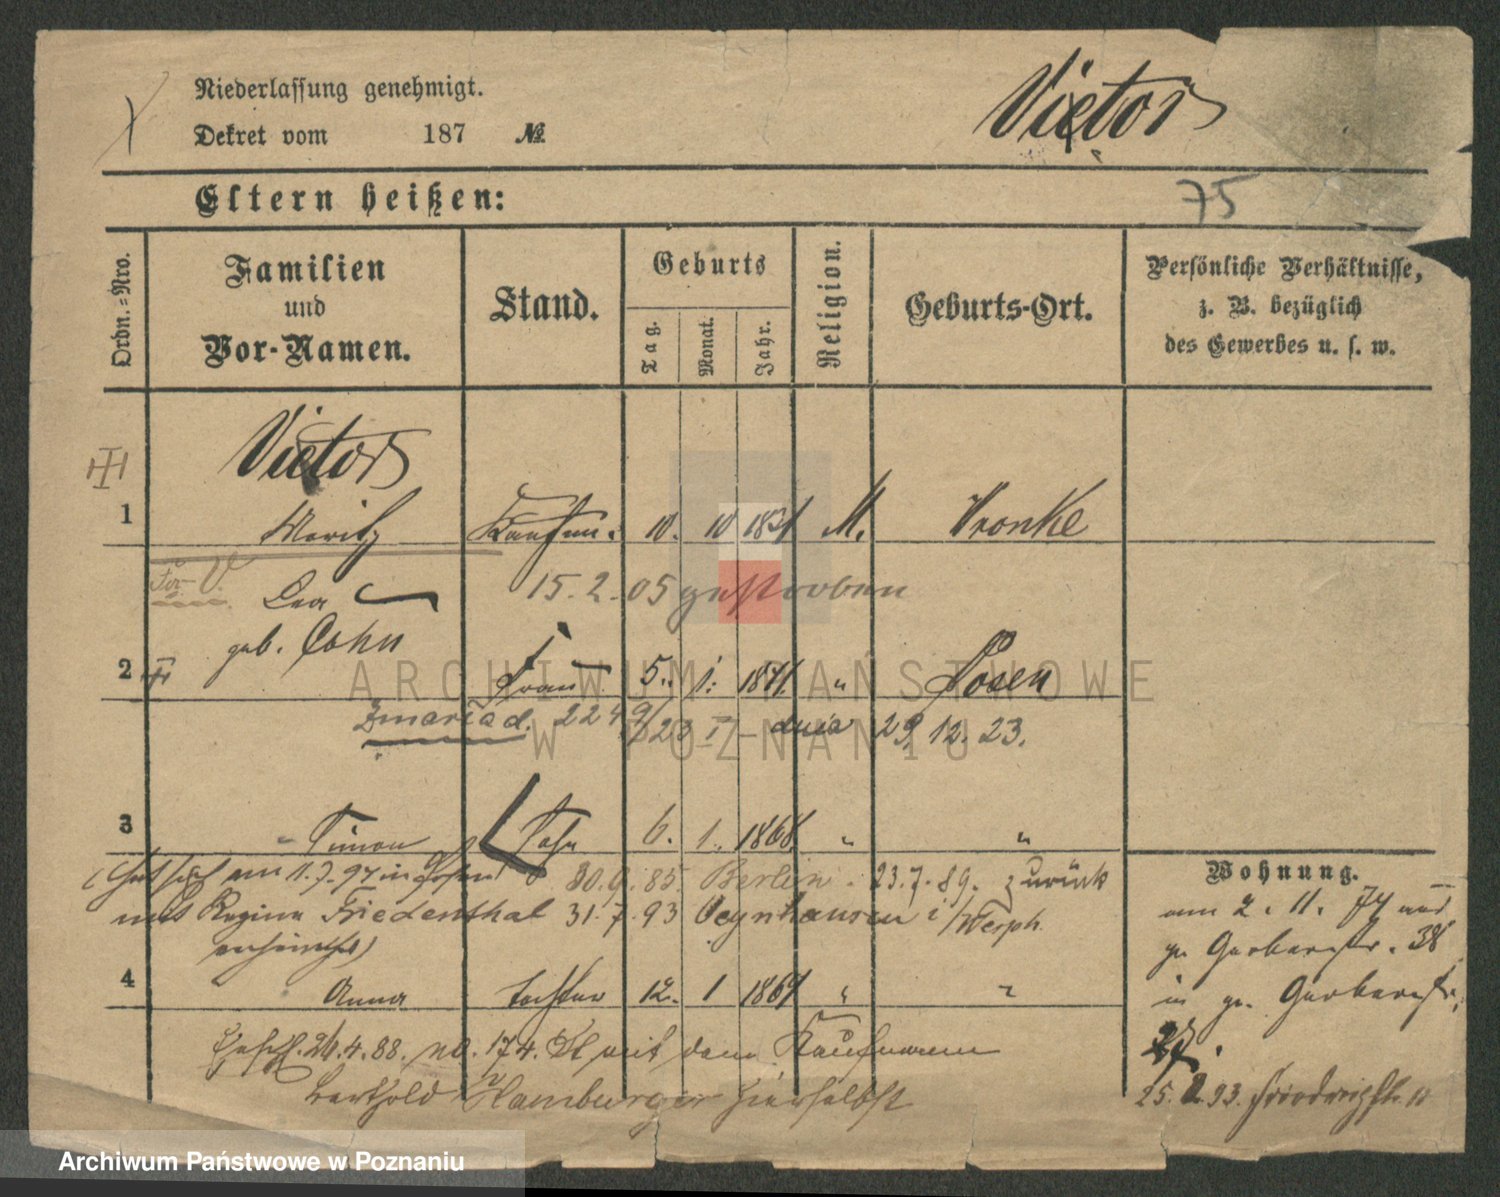 Niederlassung genehmigt.
Dekret vom 187 №
Victor
75
Eltern heißen:
Ordn.-Nro.
Familien
und
Vor-Namen.
Stand.
Geburts
Tag.
Monat.
Jahr.
Religion.
Geburts-Ort.
Persönliche Verhältnisse,
z. B. bezüglich
des Gewerbes u. s. w.
Victor
1 Moritz Kaufm. 10. 10 1831 M. Wronke
15.2.05 gestorben
Lea
geb. Cohn
2 Frau 5. 1. 1841 " Posen
Zmarła d. 29.12.23.
3 Simon Sohn 6. 1. 1868 " "
(hat sich am 11.7.97 in Posen 30.9.85 Berlin. 23.7.89. zurück
mit Regina Friedenthal 31.7.93 Oeynhausen i/Westph.
verheirathet)
4 Anna Tochter 12. 1 1869 " "
Gesch. 26.4.88. No. 174. St. mit dem Kaufmann
Berthold Hamburger hierselbst
Wohnung.
am 2. 11. 74 von
gr. Gerberstr. 38
in gr. Gerberstr.
25. 93. Friedrichstr. 10
ARCHIWUM PAŃSTWOWE
W POZNANIU
Archiwum Państwowe w Poznaniu